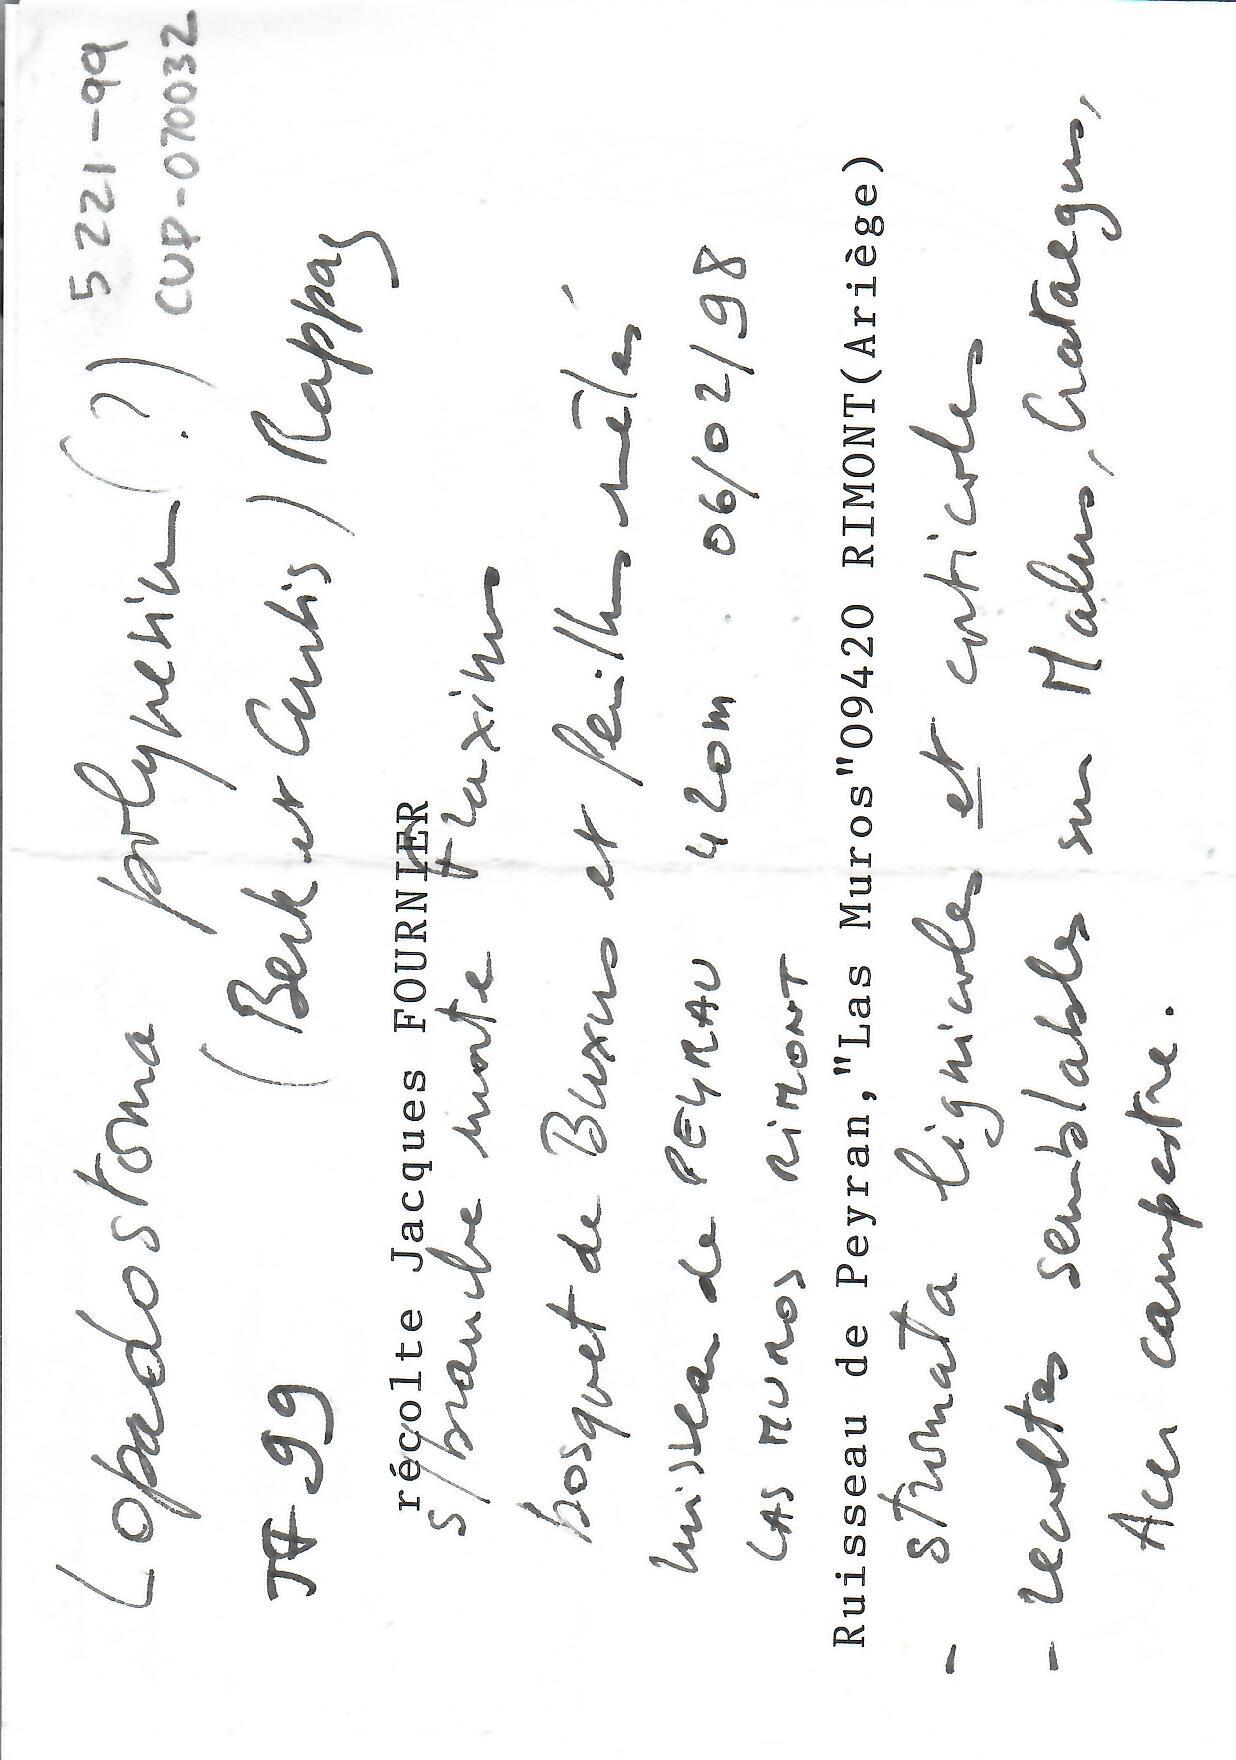 5221-99
CUP-070032
Lopadostoma polynesium (?)
(Berk et Curtis) Rappaz
JF 99
récolte Jacques FOURNIER
s/branche morte Fraxinus
bosquet de Buxus et feuillus mêlés,
ruisseau de PEYRAU 420m 06/02/98
LAS MUROS RIMONT
Ruisseau de Peyran,"Las Muros"09420 RIMONT(Ariège)
- stromata lignicoles et corticoles
- récoltes semblables sur Malus, Crataegus,
Acer campestre.